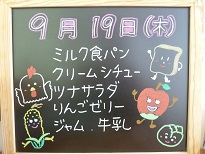 9月19日(木)
ミルク食パン
クリームシチュー
ツナサラダ
りんごゼリー
ジャム.牛乳